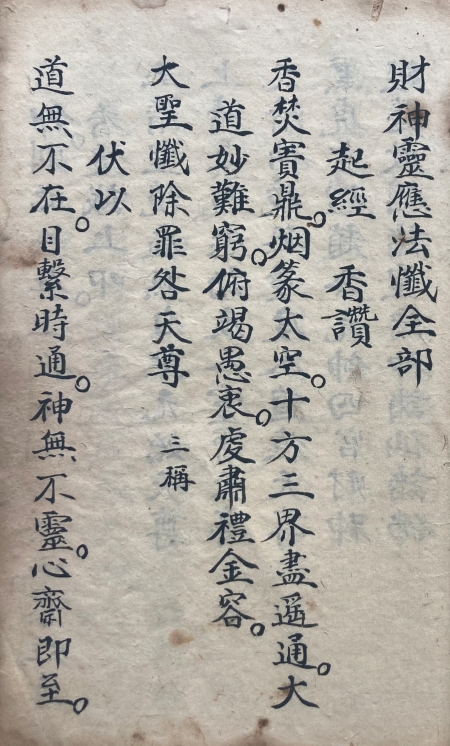 財神靈應法懺全部
起經　香讚
香焚寳鼎。烟篆太空。十方三界盡遥通。大
道妙難窮。俯竭愚衷。虔肅禮金容。
大聖懺除罪咎天尊　三稱
伏以
道無不在。目繫時通。神無不靈。心齋即至。